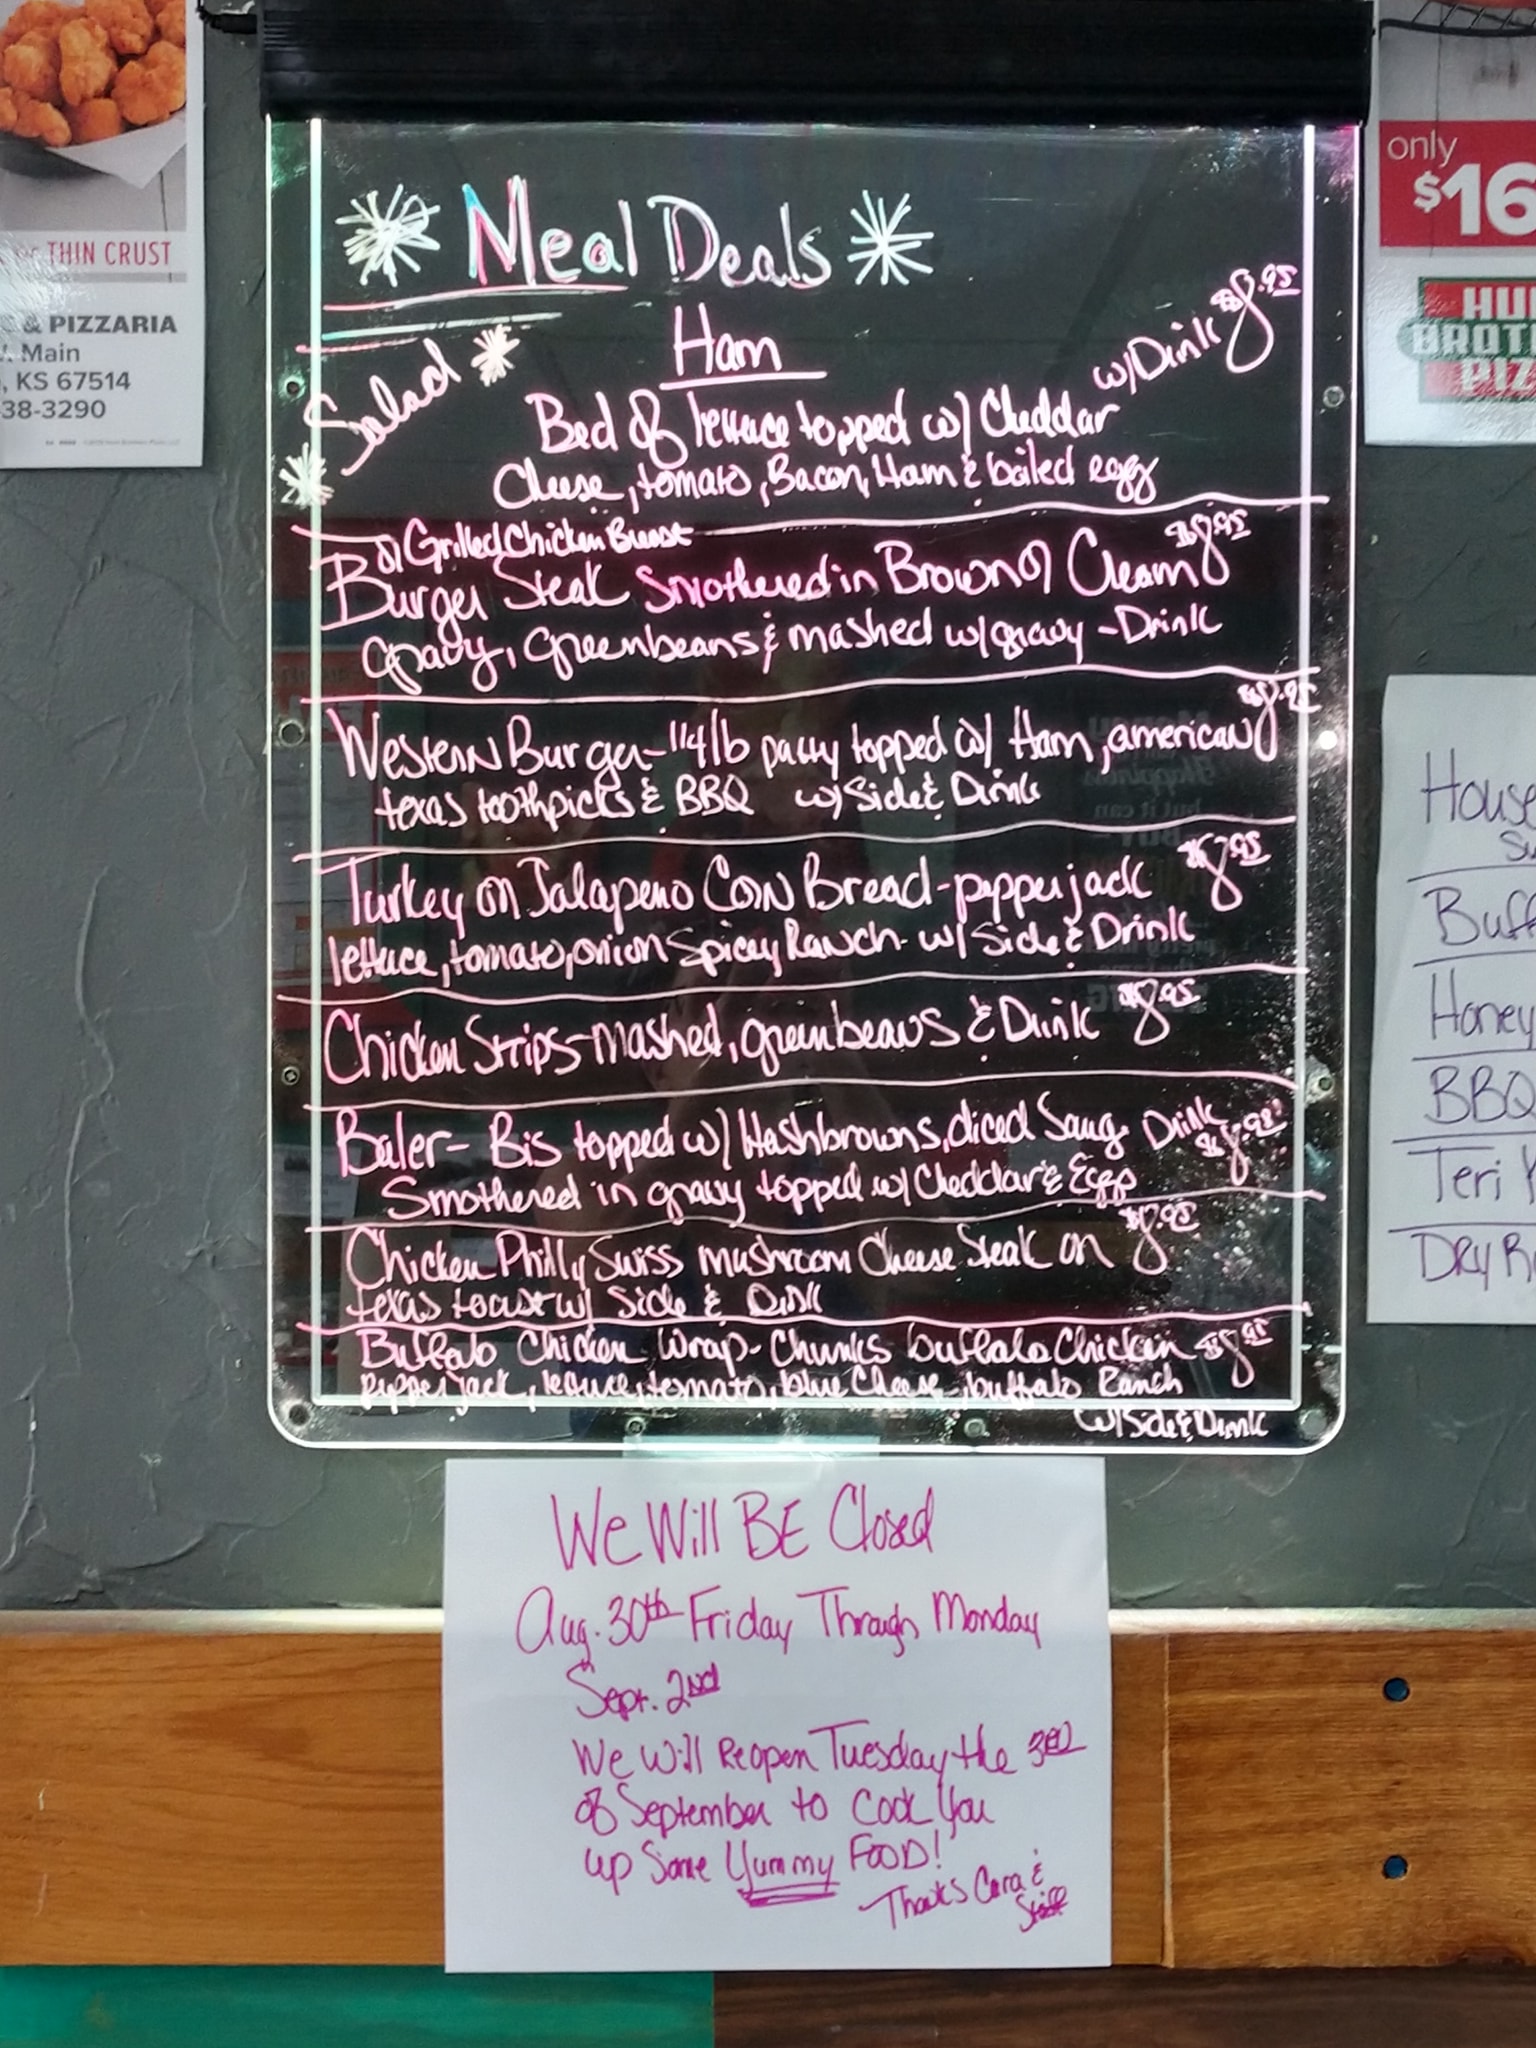 Meal Deals
Salad
Ham
w/Drink $8.95
Bed Of lettuce topped w/ Cheddar
Cheese, tomato, Bacon, Ham & boiled egg
or Grilled Chicken Breast
Burger Steak Smothered in Brown or Cream $8.95
gravy, greenbeans & mashed w/gravy - Drink
Western Burger - 1/4 lb patty topped w/ Ham, american $8.95
texas toothpicks & BBQ w/ Side & Drink
Turkey on Jalapeno Corn Bread - pepperjack $8.95
lettuce, tomato, onion Spicey Ranch - w/ Side & Drink
Chicken Strips - mashed, greenbeans & Drink $8.95
Baler - Bis topped w/ Hashbrowns, diced Saug. Drink $8.95
Smothered in gravy topped w/ Cheddar & Egg
Chicken Philly Swiss mushroom Cheese Steak on $8.95
texas toast w/ Side & Drink
Buffalo Chicken Wrap - Chunks buffalo Chicken $8.95
pepper jack, lettuce, tomato, blue Cheese, buffalo Ranch
w/ Side & Drink
We Will BE Closed
Aug. 30th Friday Through Monday
Sept. 2nd
We Will Reopen Tuesday the 3RD
of September to Cook You
up Some Yummy FOOD!
Thanks Cara &
Staff
THIN CRUST
& PIZZARIA
Main
, KS 67514
38-3290
only
$16
HU
BROT
PIZ
House
Su
Buff
Honey
BBQ
Teri
Dry R